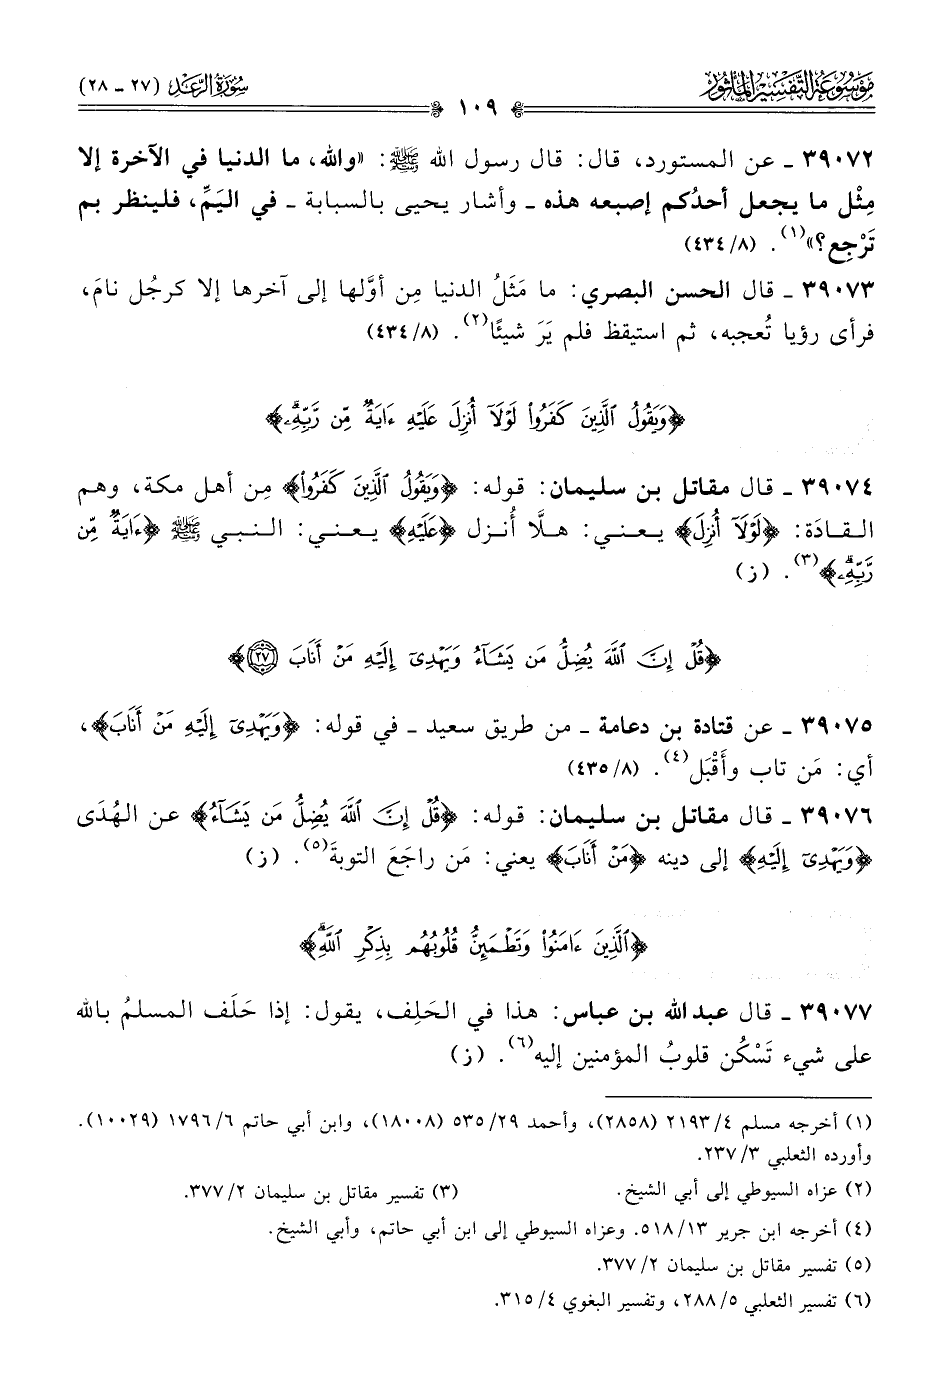 مَوْسُوعَةُ التَّفْسِيرِ المَأْثُورِ
سُورَةُ الرَّعْدِ (٢٧ ـ ٢٨)
١٠٩
٣٩٠٧٢ ـ عن المستورد، قال: قال رسول الله ﷺ: «والله، ما الدنيا في الآخرة إلا
مِثْل ما يجعل أحدُكم إصبعه هذه ـ وأشار يحيى بالسبابة ـ في اليَمِّ، فلينظر بم
تَرْجِع؟»(١). (٤٣٤/٨)
٣٩٠٧٣ ـ قال الحسن البصري: ما مَثَلُ الدنيا مِن أوَّلها إلى آخرها إلا كرجُل نامَ،
فرأى رؤيا تُعجبه، ثم استيقظ فلم يَرَ شيئًا(٢). (٤٣٤/٨)
﴿وَيَقُولُ ٱلَّذِينَ كَفَرُوا۟ لَوْلَآ أُنزِلَ عَلَيْهِ ءَايَةٌ مِّن رَّبِّهِۦۗ﴾
٣٩٠٧٤ ـ قال مقاتل بن سليمان: قوله: ﴿وَيَقُولُ ٱلَّذِينَ كَفَرُوا۟﴾ مِن أهل مكة، وهم
القادَة: ﴿لَوْلَآ أُنزِلَ﴾ يعني: هلَّا أُنزل ﴿عَلَيْهِ﴾ يعني: النبي ﷺ ﴿ءَايَةٌ مِّن
رَّبِّهِۦۗ﴾(٣). (ز)
﴿قُلْ إِنَّ ٱللَّهَ يُضِلُّ مَن يَشَآءُ وَيَهْدِىٓ إِلَيْهِ مَنْ أَنَابَ ٢٧﴾
٣٩٠٧٥ ـ عن قتادة بن دعامة ـ من طريق سعيد ـ في قوله: ﴿وَيَهْدِىٓ إِلَيْهِ مَنْ أَنَابَ﴾،
أي: مَن تاب وأَقْبَل(٤). (٤٣٥/٨)
٣٩٠٧٦ ـ قال مقاتل بن سليمان: قوله: ﴿قُلْ إِنَّ ٱللَّهَ يُضِلُّ مَن يَشَآءُ﴾ عن الهُدَى
﴿وَيَهْدِىٓ إِلَيْهِ﴾ إلى دينه ﴿مَنْ أَنَابَ﴾ يعني: مَن راجَعَ التوبةَ(٥). (ز)
﴿ٱلَّذِينَ ءَامَنُوا۟ وَتَطْمَئِنُّ قُلُوبُهُم بِذِكْرِ ٱللَّهِۗ﴾
٣٩٠٧٧ ـ قال عبد الله بن عباس: هذا في الحَلِف، يقول: إذا حَلَف المسلمُ بالله
على شيء تَسْكُن قلوبُ المؤمنين إليه(٦). (ز)
(١) أخرجه مسلم ٢١٩٣/٤ (٢٨٥٨)، وأحمد ٥٣٥/٢٩ (١٨٠٠٨)، وابن أبي حاتم ١٧٩٦/٦ (١٠٠٢٩).
وأورده الثعلبي ٢٣٧/٣.
(٢) عزاه السيوطي إلى أبي الشيخ.
(٣) تفسير مقاتل بن سليمان ٣٧٧/٢.
(٤) أخرجه ابن جرير ٥١٨/١٣. وعزاه السيوطي إلى ابن أبي حاتم، وأبي الشيخ.
(٥) تفسير مقاتل بن سليمان ٣٧٧/٢.
(٦) تفسير الثعلبي ٢٨٨/٥، وتفسير البغوي ٣١٥/٤.